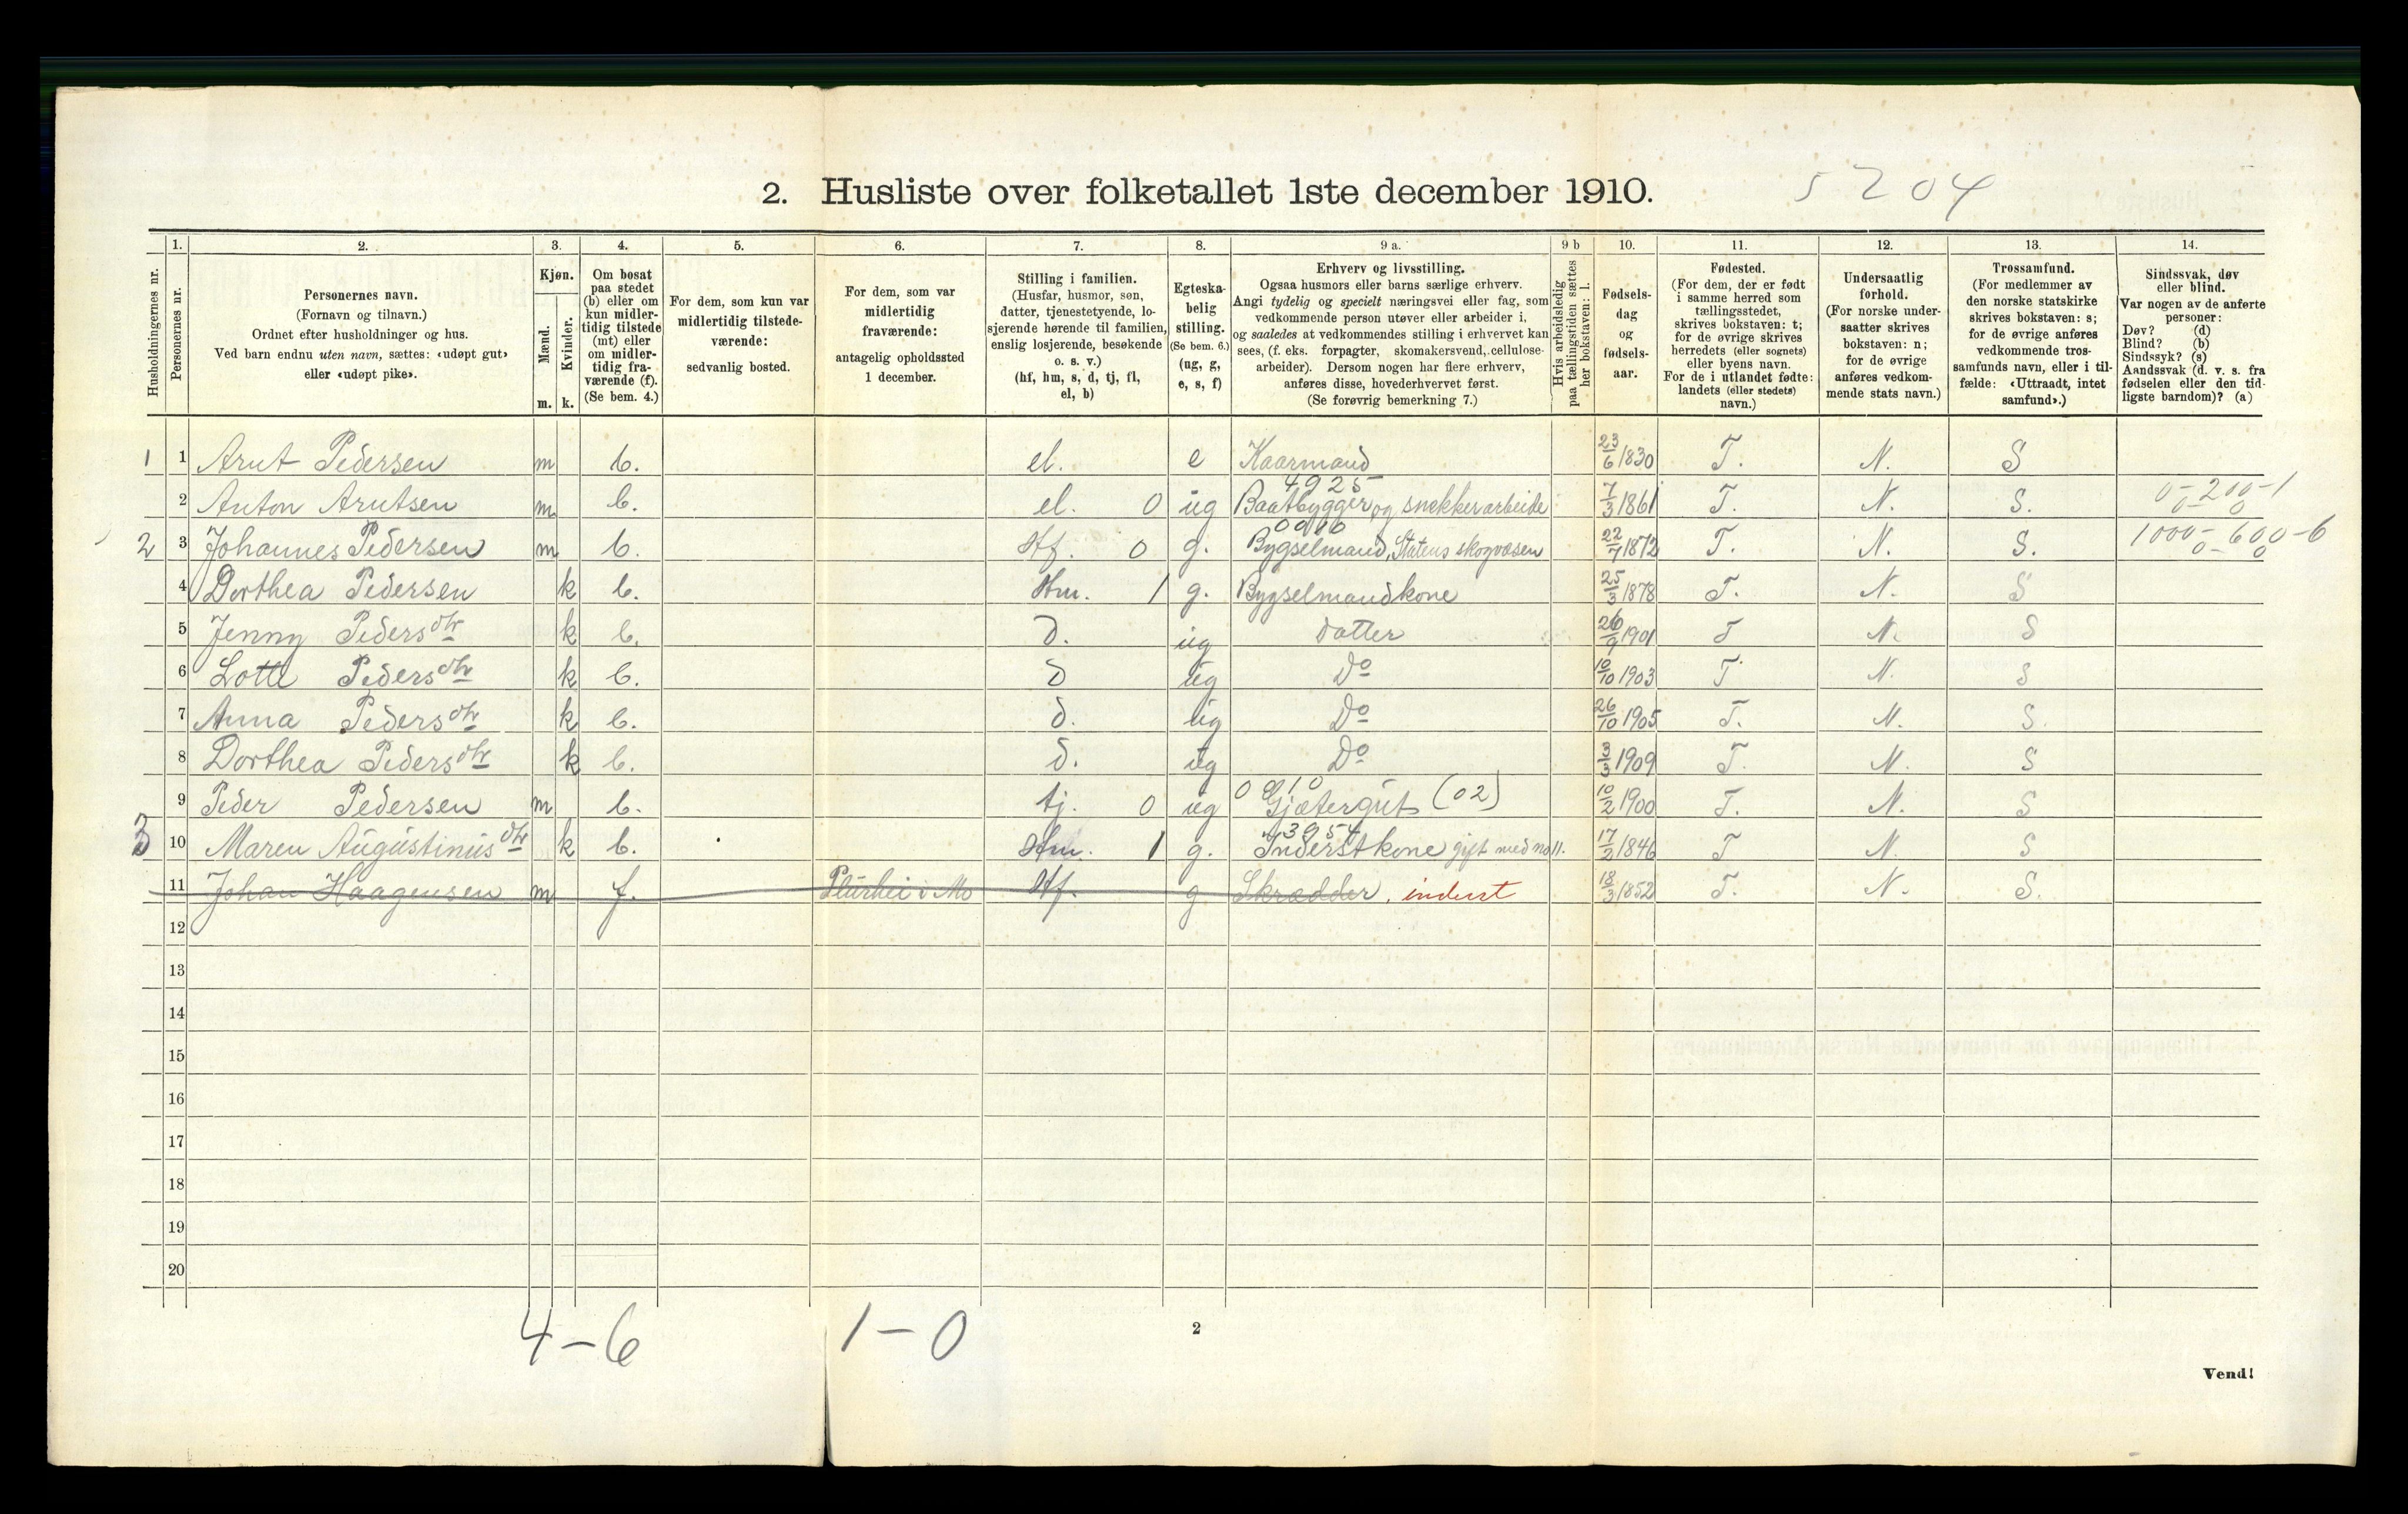 2. Husliste over folketallet 1ste december 1910. 5204
Husholdningernes nr.
1. Personernes nr.
2. Personernes navn. (Fornavn og tilnavn.) Ordnet efter husholdninger og hus. Ved barn endnu uten navn, sættes: «udøpt gut» eller «udøpt pike».
3. Kjøn. Mænd. m. Kvinder. k.
4. Om bosat paa stedet (b) eller om kun midler- tidig tilstede (mt) eller om midler- tidig fra- værende (f). (Se bem. 4.)
5. For dem, som kun var midlertidig tilstede- værende: sedvanlig bosted.
6. For dem, som var midlertidig fraværende: antagelig opholdssted 1 december.
7. Stilling i familien. (Husfar, husmor, søn, datter, tjenestetyende, lo- sjerende hørende til familien, enslig losjerende, besøkende o. s. v.) (hf, hm, s, d, tj, fl, el, b)
8. Egteska- belig stilling. (Se bem. 6.) (ug, g, e, s, f)
9 a. Erhverv og livsstilling. Ogsaa husmors eller barns særlige erhverv. Angi tydelig og specielt næringsvei eller fag, som vedkommende person utøver eller arbeider i, og saaledes at vedkommendes stilling i erhvervet kan sees, (f. eks. forpagter, skomakersvend, cellulose- arbeider). Dersom nogen har flere erhverv, anføres disse, hovederhvervet først. (Se forøvrig bemerkning 7.)
9 b Hvis arbeidsledig paa tællingstiden sættes her bokstaven: l.
10. Fødsels- dag og fødsels- aar.
11. Fødested. (For dem, der er født i samme herred som tællingsstedet, skrives bokstaven: t; for de øvrige skrives herredets (eller sognets) eller byens navn. For de i utlandet fødte: landets (eller stedets) navn.)
12. Undersaatlig forhold. (For norske under- saatter skrives bokstaven: n; for de øvrige anføres vedkom- mende stats navn.)
13. Trossamfund. (For medlemmer av den norske statskirke skrives bokstaven: s; for de øvrige anføres vedkommende tros- samfunds navn, eller i til- fælde: «Uttraadt, intet samfund».)
14. Sindssvak, døv eller blind. Var nogen av de anførte personer: Døv? (d) Blind? (b) Sindssyk? (s) Aandssvak (d. v. s. fra fødselen eller den tid- ligste barndom)? (a)
1 1 Arnt Pedersen m b. el. e Kaarmand 23/6 1830 T. N. S
4925
2 Anton Arntsen m b. el. 0 ug Baatbygger og snekkerarbeide 7/3 1861 T. N. S. 0-200-1
2 3 Johannes Pedersen m b. Hf. 0 g. Bygselmand, Statens skogvæsen 22/7 1872 T. N. S. 1000-600-6
4 Dorthea Pedersen k b. Hm. 1 g. Bygselmandkone 25/3 1878 T. N. S
5 Jenny Pedersdtr k b. d. ug datter 26/9 1901 T N. S
6 Lotte Pedersdtr k b. d ug Do 10/10 1903 T N. S
7 Anna Pedersdtr k b. d. ug Do 26/10 1905 T. N. S.
8 Dorthea Pedersdtr k b. d. ug Do 3/3 1909 T. N. S
9 Peder Pedersen m b. tj. 0 ug Gjætergut (02) 10/2 1900 T. N. S
3954
3 10 Maren Augustinusdtr k b. Hm. 1 g. Inderstkone gift med no 11. 17/2 1846 T N. S
11 Johan Haagensen m f. Plurhei i Mo Hf. g Skrædder, inderst 18/3 1852 T. N. S.
12
13
14
15
16
17
18
19
20
4-6 1-0
2
Vend!